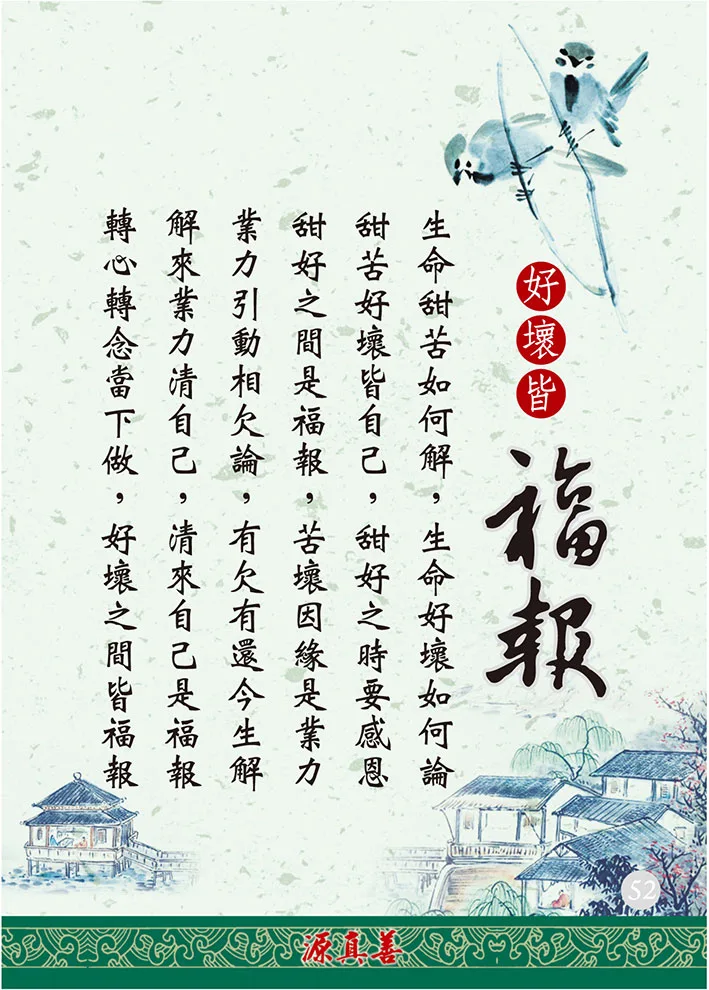 好壞皆
福報
生命甜苦如何解，生命好壞如何論
甜苦好壞皆自己，甜好之時要感恩
甜好之間是福報，苦壞因緣是業力
業力引動相欠論，有欠有還今生解
解來業力清自己，清來自己是福報
轉心轉念當下做，好壞之間皆福報
52
源真善